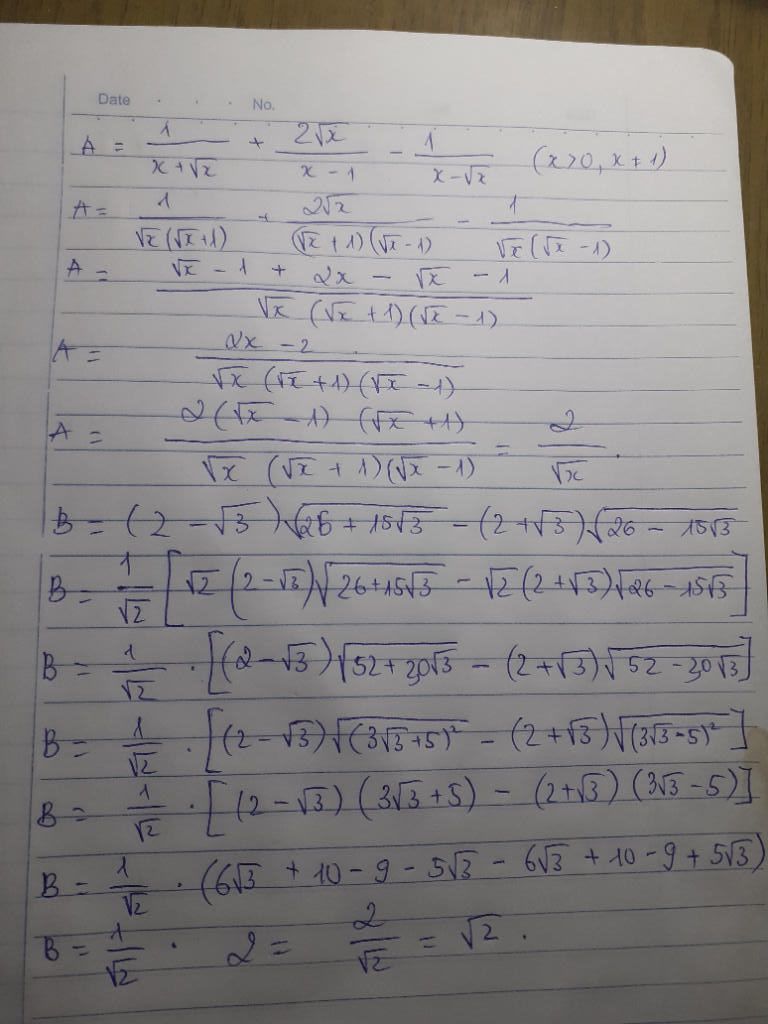 Date . . . No.
A = 1/(x+√x) + 2√x/(x-1) - 1/(x-√x) (x>0, x≠1)
A = 1/(√x(√x+1)) + 2√x/((√x+1)(√x-1)) - 1/(√x(√x-1))
A = (√x - 1 + 2x - √x - 1)/(√x (√x+1)(√x-1))
A = (2x - 2)/(√x (√x+1)(√x-1))
A = (2(√x - 1) (√x+1))/(√x (√x+1)(√x-1)) = 2/√x .
B = (2-√3)√(26+15√3) - (2+√3)√(26-15√3)
B = 1/√2 [√2(2-√3)√(26+15√3) - √2(2+√3)√(26-15√3)]
B = 1/√2 . [(2-√3)√(52+30√3) - (2+√3)√(52-30√3)]
B = 1/√2 . [(2-√3)√((3√3+5)²) - (2+√3)√((3√3-5)²)]
B = 1/√2 . [(2-√3) (3√3+5) - (2+√3) (3√3-5)]
B = 1/√2 . (6√3 + 10 - 9 - 5√3 - 6√3 + 10 - 9 + 5√3)
B = 1/√2 . 2 = 2/√2 = √2 .